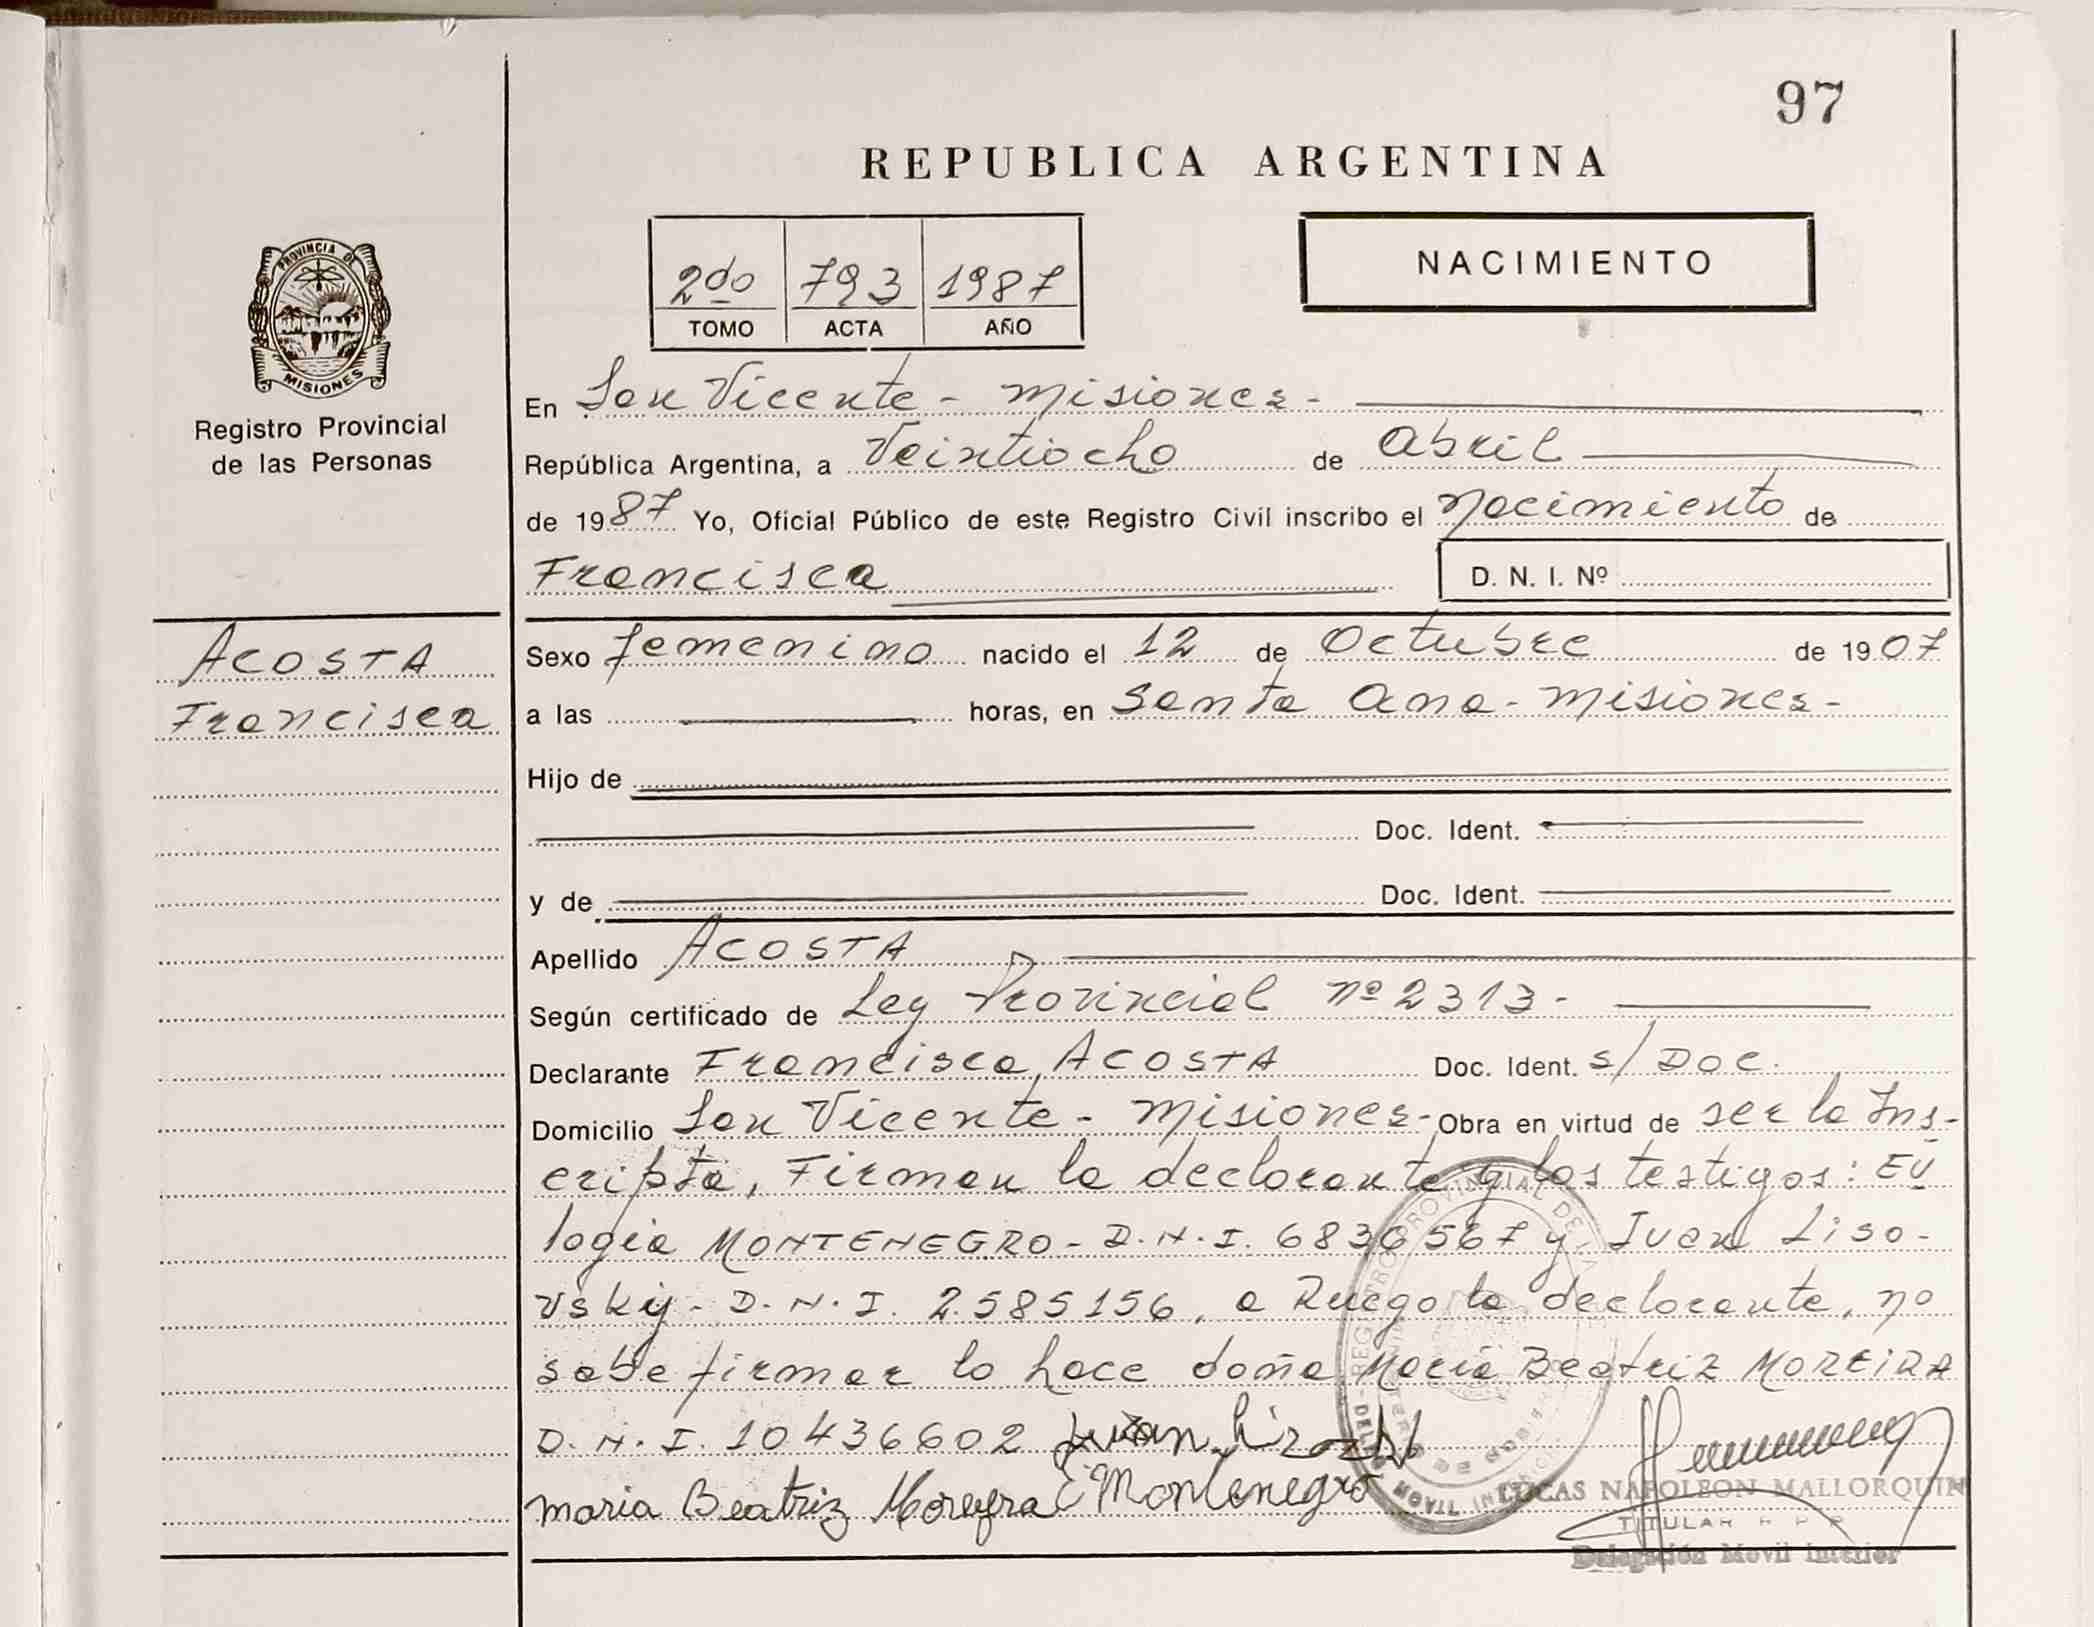 97
REPUBLICA ARGENTINA
2do 793 1987
TOMO ACTA AÑO
NACIMIENTO
PROVINCIA DE
MISIONES
Registro Provincial
de las Personas
En San Vicente - Misiones -
República Argentina, a Veintiocho de Abril
de 1987 Yo, Oficial Público de este Registro Civil inscribo el Nacimiento de
Francisca
D. N. I. Nº
ACOSTA
Francisca
Sexo femenino nacido el 12 de Octubre de 1907
a las horas, en Santa Ana - Misiones -
Hijo de
Doc. Ident.
y de Doc. Ident.
Apellido ACOSTA
Según certificado de Ley Provincial nº 2313 -
Declarante Francisca ACOSTA Doc. Ident. s/ DOC.
Domicilio San Vicente - Misiones - Obra en virtud de ser la Ins-
cripta, Firman la declarante y los testigos: EU
logia MONTENEGRO - D.N.I. 6836567 y Juan Liso-
vsky - D.N.I. 2.585156, a Ruego la declarante, no
sabe firmar lo hace doña María Beatriz MOREIRA
D.N.I. 10436602 Juan
maria Beatriz Moreyra E Montenegro
LUCAS NAPOLEON MALLORQUIN
TITULAR R P P
Delegación Movil Interior